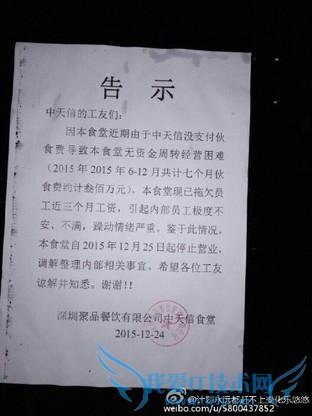 告 示
中天信的工友们：
因本食堂近期由于中天信没支付伙
食费导致本食堂无资金周转经营困难
（2015年2015年6-12月共计七个月伙
食费约计叁佰万元），本食堂现已拖欠员
工近三个月工资，引起内部员工极度不
安、不满，躁动情绪严重。鉴于此情况，
本食堂自2015年12月25日起停止营业，
调解整理内部相关事宜。希望各位工友
谅解并知悉。谢谢！！
深圳聚品餐饮有限公司中天信食堂
2015-12-24
@计划永远都赶不上变化乐悠悠
weibo.com/u/5800437852